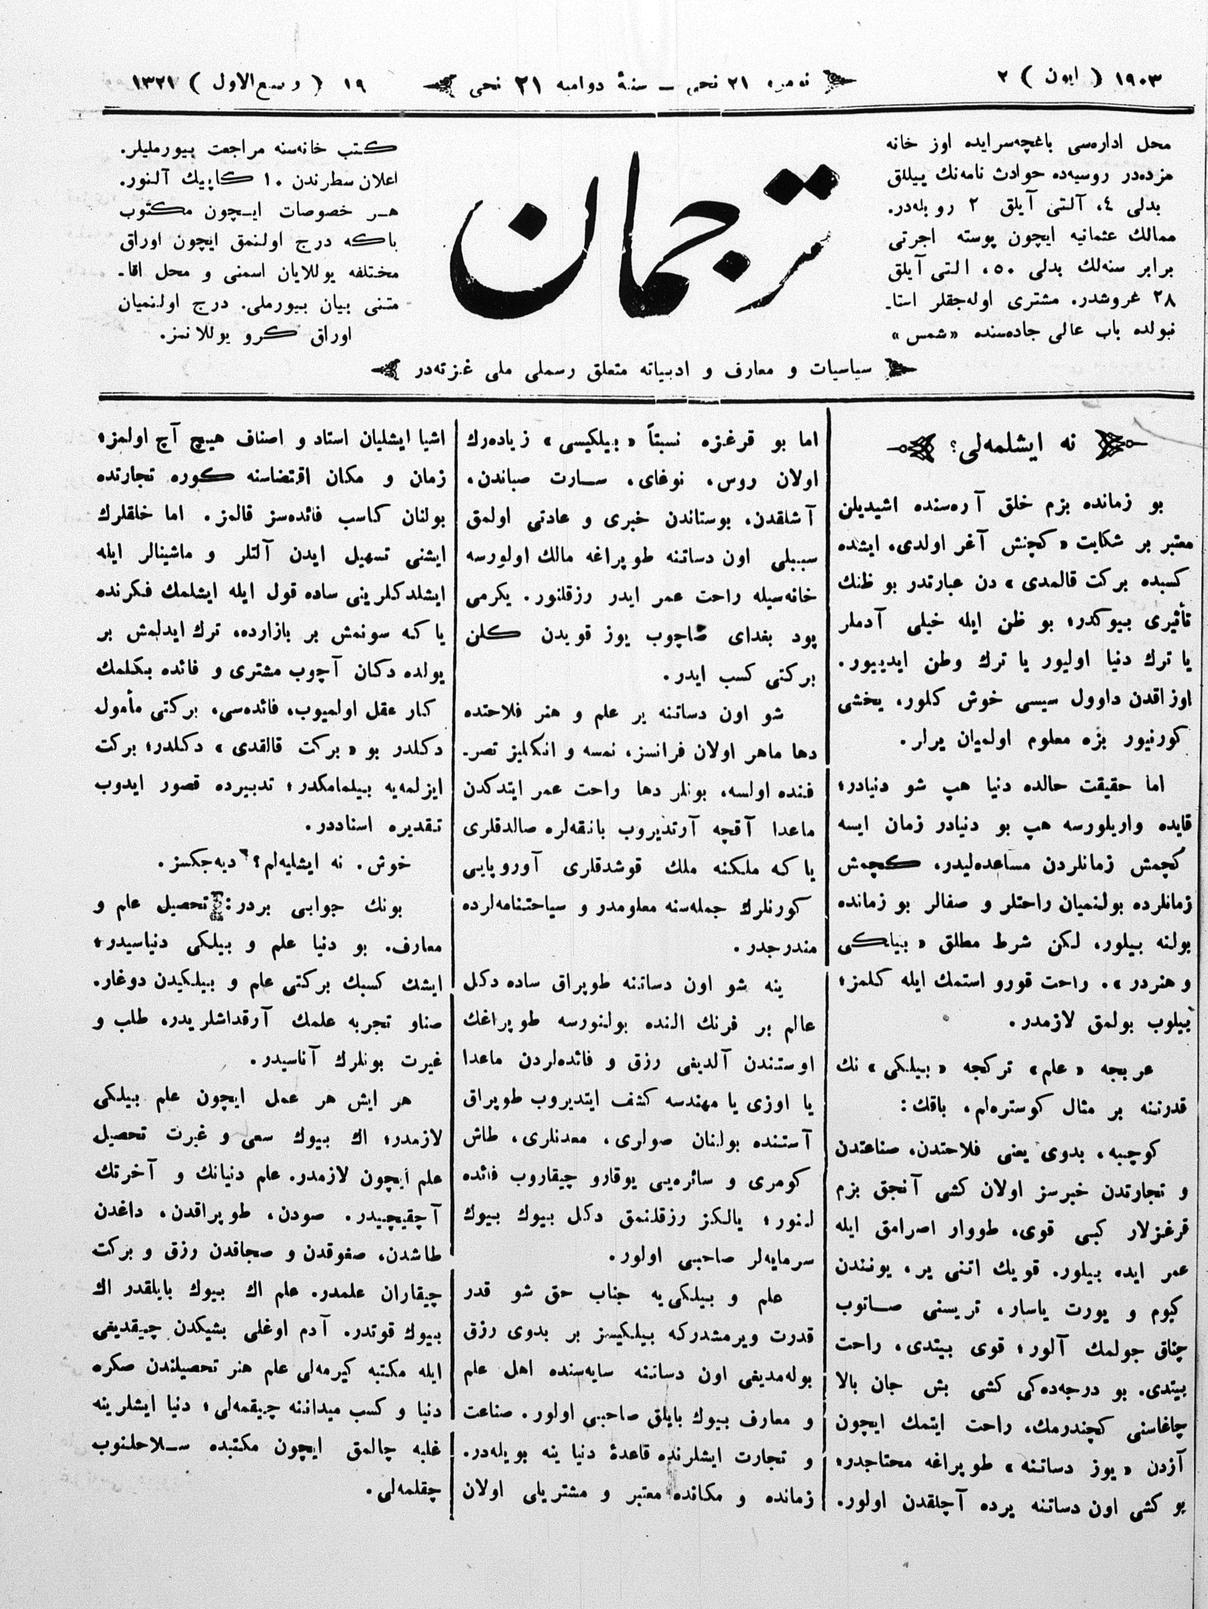 ١٩٠٣ ( ايون ) ٢
نومرو ٢١ نجى — سنۀ دواميه ٢١ نجى
١٩ ( ربيع الاول ) ١٣٢١
محل اداره‌سى باغچه‌سرايده اوز خانه
مزده‌در روسيه‌ده حوادث نامه‌نك ييللق
بدلى ٤، آلتى آيلق ٢ روبله‌در.
ممالك عثمانيه ايچون پوسته اجرتى
برابر سنه‌لك بدلى ٥٠، التى آيلق
٢٨ غروشدر. مشترى اوله‌جقلر استا-
نبولده باب عالى جاده‌سنده «شمس»
ترجمان
كتب خانه‌سنه مراجعت بيورمليلر.
اعلان سطرندن ١٠ كاپيك آلنور.
هر خصوصات ايچون مكتوب
باكه درج اولنمق ايچون اوراق
مختلفه يوللايان اسمنى و محل اقا-
متنى بيان بيورملى. درج اولنميان
اوراق كرو يوللانمز.
سياسيات و معارف و ادبياته متعلق رسملى ملى غزته‌در
نه ايشلمه‌لى؟
بو زمانده بزم خلق آره‌سنده اشيديلن
معتبر بر شكايت «كچنش آغر اولدى، ايشده
كسبده بركت قالمدى» دن عبارتدر بو ظنك
تأثيرى بيوكدر؛ بو ظن ايله خيلى آدملر
يا ترك دنيا اوليور يا ترك وطن ايدييور.
اوزاقدن داوول سيسى خوش كلور، يخشى
كورنيور بزه معلوم اولميان يرلر.
اما حقيقت حالده دنيا هپ شو دنيادر؛
قايده واريلورسه هپ بو دنيادر زمان ايسه
كچمش زمانلردن مساعده‌ليدر، كچمش
زمانلرده بولنميان راحتلر و صفالر بو زمانده
بولنه بيلور، لكن شرط مطلق «بيلكى
و هنردر». راحت قورو استمك ايله كلمز؛
بيلوب بولمق لازمدر.
عربجه «علم» تركجه «بيلكى» نك
قدرتنه بر مثال كوستره‌لم، باقك:
كوچبه، بدوى يعنى فلاحتدن، صناعتدن
و تجارتدن خبرسز اولان كشى آنجق بزم
قرغزلار كبى قوى، طووار اصرامق ايله
عمر ايده بيلور. قويك اتنى ير، يونندن
كيوم و يورت ياسار، تريسنى صاتوب
چناق جولمك آلور؛ قوى بيتدى، راحت
بيتدى. بو درجه‌ده‌كى كشى بش جان بالا
چاغاسنى كچندرمك، راحت ايتمك ايچون
آزدن «يوز دساتنه» طوپراغه محتاجدر؛
بو كشى اون دساتنه يرده آچلقدن اولور.
اما بو قرغزه نسبتاً «بيلكيسى» زياده‌رك
اولان روس، نوغاى، سارت صباندن،
آشلقدن، بوستاندن خبرى و عادتى اولمق
سببلى اون دساتنه طوپراغه مالك اولورسه
خانه‌سيله راحت عمر ايدر رزقلنور. يكرمى
پود بغداى صاچوب يوز قويدن كلن
بركتى كسب ايدر.
شو اون دساتنه ير علم و هنر فلاحتده
دها ماهر اولان فرانسز، نمسه و انكليز تصر-
فنده اولسه، بونلر دها راحت عمر ايتدكدن
ماعدا آقچه آرتديروب بانقه‌لره صالدقلرى
ياكه ملكنه ملك قوشدقلرى آوروپايى
كورنلرك جمله‌سنه معلومدر و سياحتنامه‌لرده
مندرجدر.
ينه شو اون دساتنه طوپراق ساده دكل
عالم بر فرنك النده بولنورسه طوپراغك
اوستندن آلديغى رزق و فائده‌لردن ماعدا
يا اوزى يا مهندسه كشف ايتديروب طوپراق
آستنده بولنان صولرى، معدنلرى، طاش
كومرى و سائره‌يى يوقارو چيقاروب فائده
لنور؛ يالكز رزقلنمق دكل بيوك بيوك
سرمايه‌لر صاحبى اولور.
علم و بيلكى‌يه جناب حق شو قدر
قدرت ويرمشدركه بيلكيسز بر بدوى رزق
بوله‌مديغى اون دساتنه سايه‌سنده اهل علم
و معارف بيوك بايلق صاحبى اولور. صناعت
و تجارت ايشلرنده قاعدۀ دنيا ينه بويله‌در.
زمانده و مكانده معتبر و مشتريلى اولان
اشيا ايشليان استاد و اصناف هيچ آچ اولمز؛
زمان و مكان اقتضاسنه كوره تجارتده
بولنان كاسب فائده‌سز قالمز. اما خلقلرك
ايشنى تسهيل ايدن آلتلر و ماشينالر ايله
ايشلدكلرينى ساده قول ايله ايشلمك فكرنده
ياكه سونمش بر بازارده، ترك ايدلمش بر
يولده دكان آچوب مشترى و فائده بكلمك
كار عقل اولميوب، فائده‌سى، بركتى مأمول
دكلدر بو «بركت قالقدى» دكلدر؛ بركت
ايزلمه‌يه بيلمامكدر؛ تدبيرده قصور ايدوب
تقديره اسناددر.
خوش. نه ايشليه‌لم؟ ديه‌جكسز.
بونك جوابى بردر: تحصيل علم و
معارف. بو دنيا علم و بيلكى دنياسيدر؛
ايشك كسبك بركتى علم و بيلكيدن دوغار.
صناو تجربه علمك آرقداشلريدر، طلب و
غيرت بونلرك آناسيدر.
هر ايش هر عمل ايچون علم بيلكى
لازمدر؛ اك بيوك سعى و غيرت تحصيل
علم ايچون لازمدر. علم دنيانك و آخرتك
آچقيچيدر. صودن، طوپراقدن، داغدن
طاشدن، صغوقدن و صجاقدن رزق و بركت
چيقاران علمدر. علم اك بيوك بايلقدر اك
بيوك قوتدر. آدم اوغلى بشيكدن چيقديغى
ايله مكتبه كيرمه‌لى علم هنر تحصيلندن صكره
دنيا و كسب ميداننه چيقمه‌لى؛ دنيا ايشلرينه
غلبه چالمق ايچون مكتبده سلاحلنوب
چقلمه‌لى.